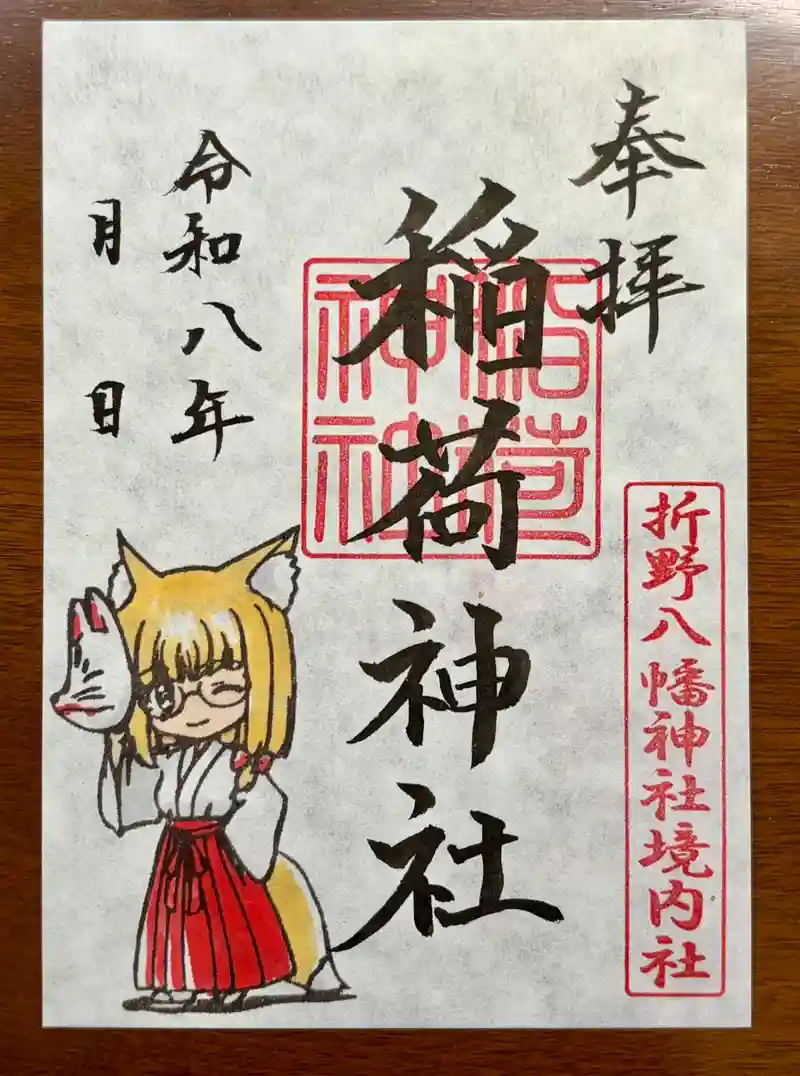 奉拝
折野八幡神社境内社
稲荷神社
稲荷神社
令和八年
月　日